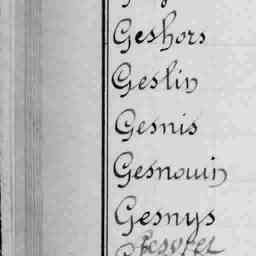 Geshors
Geslin
Gesnis
Gesnouin
Gesnys